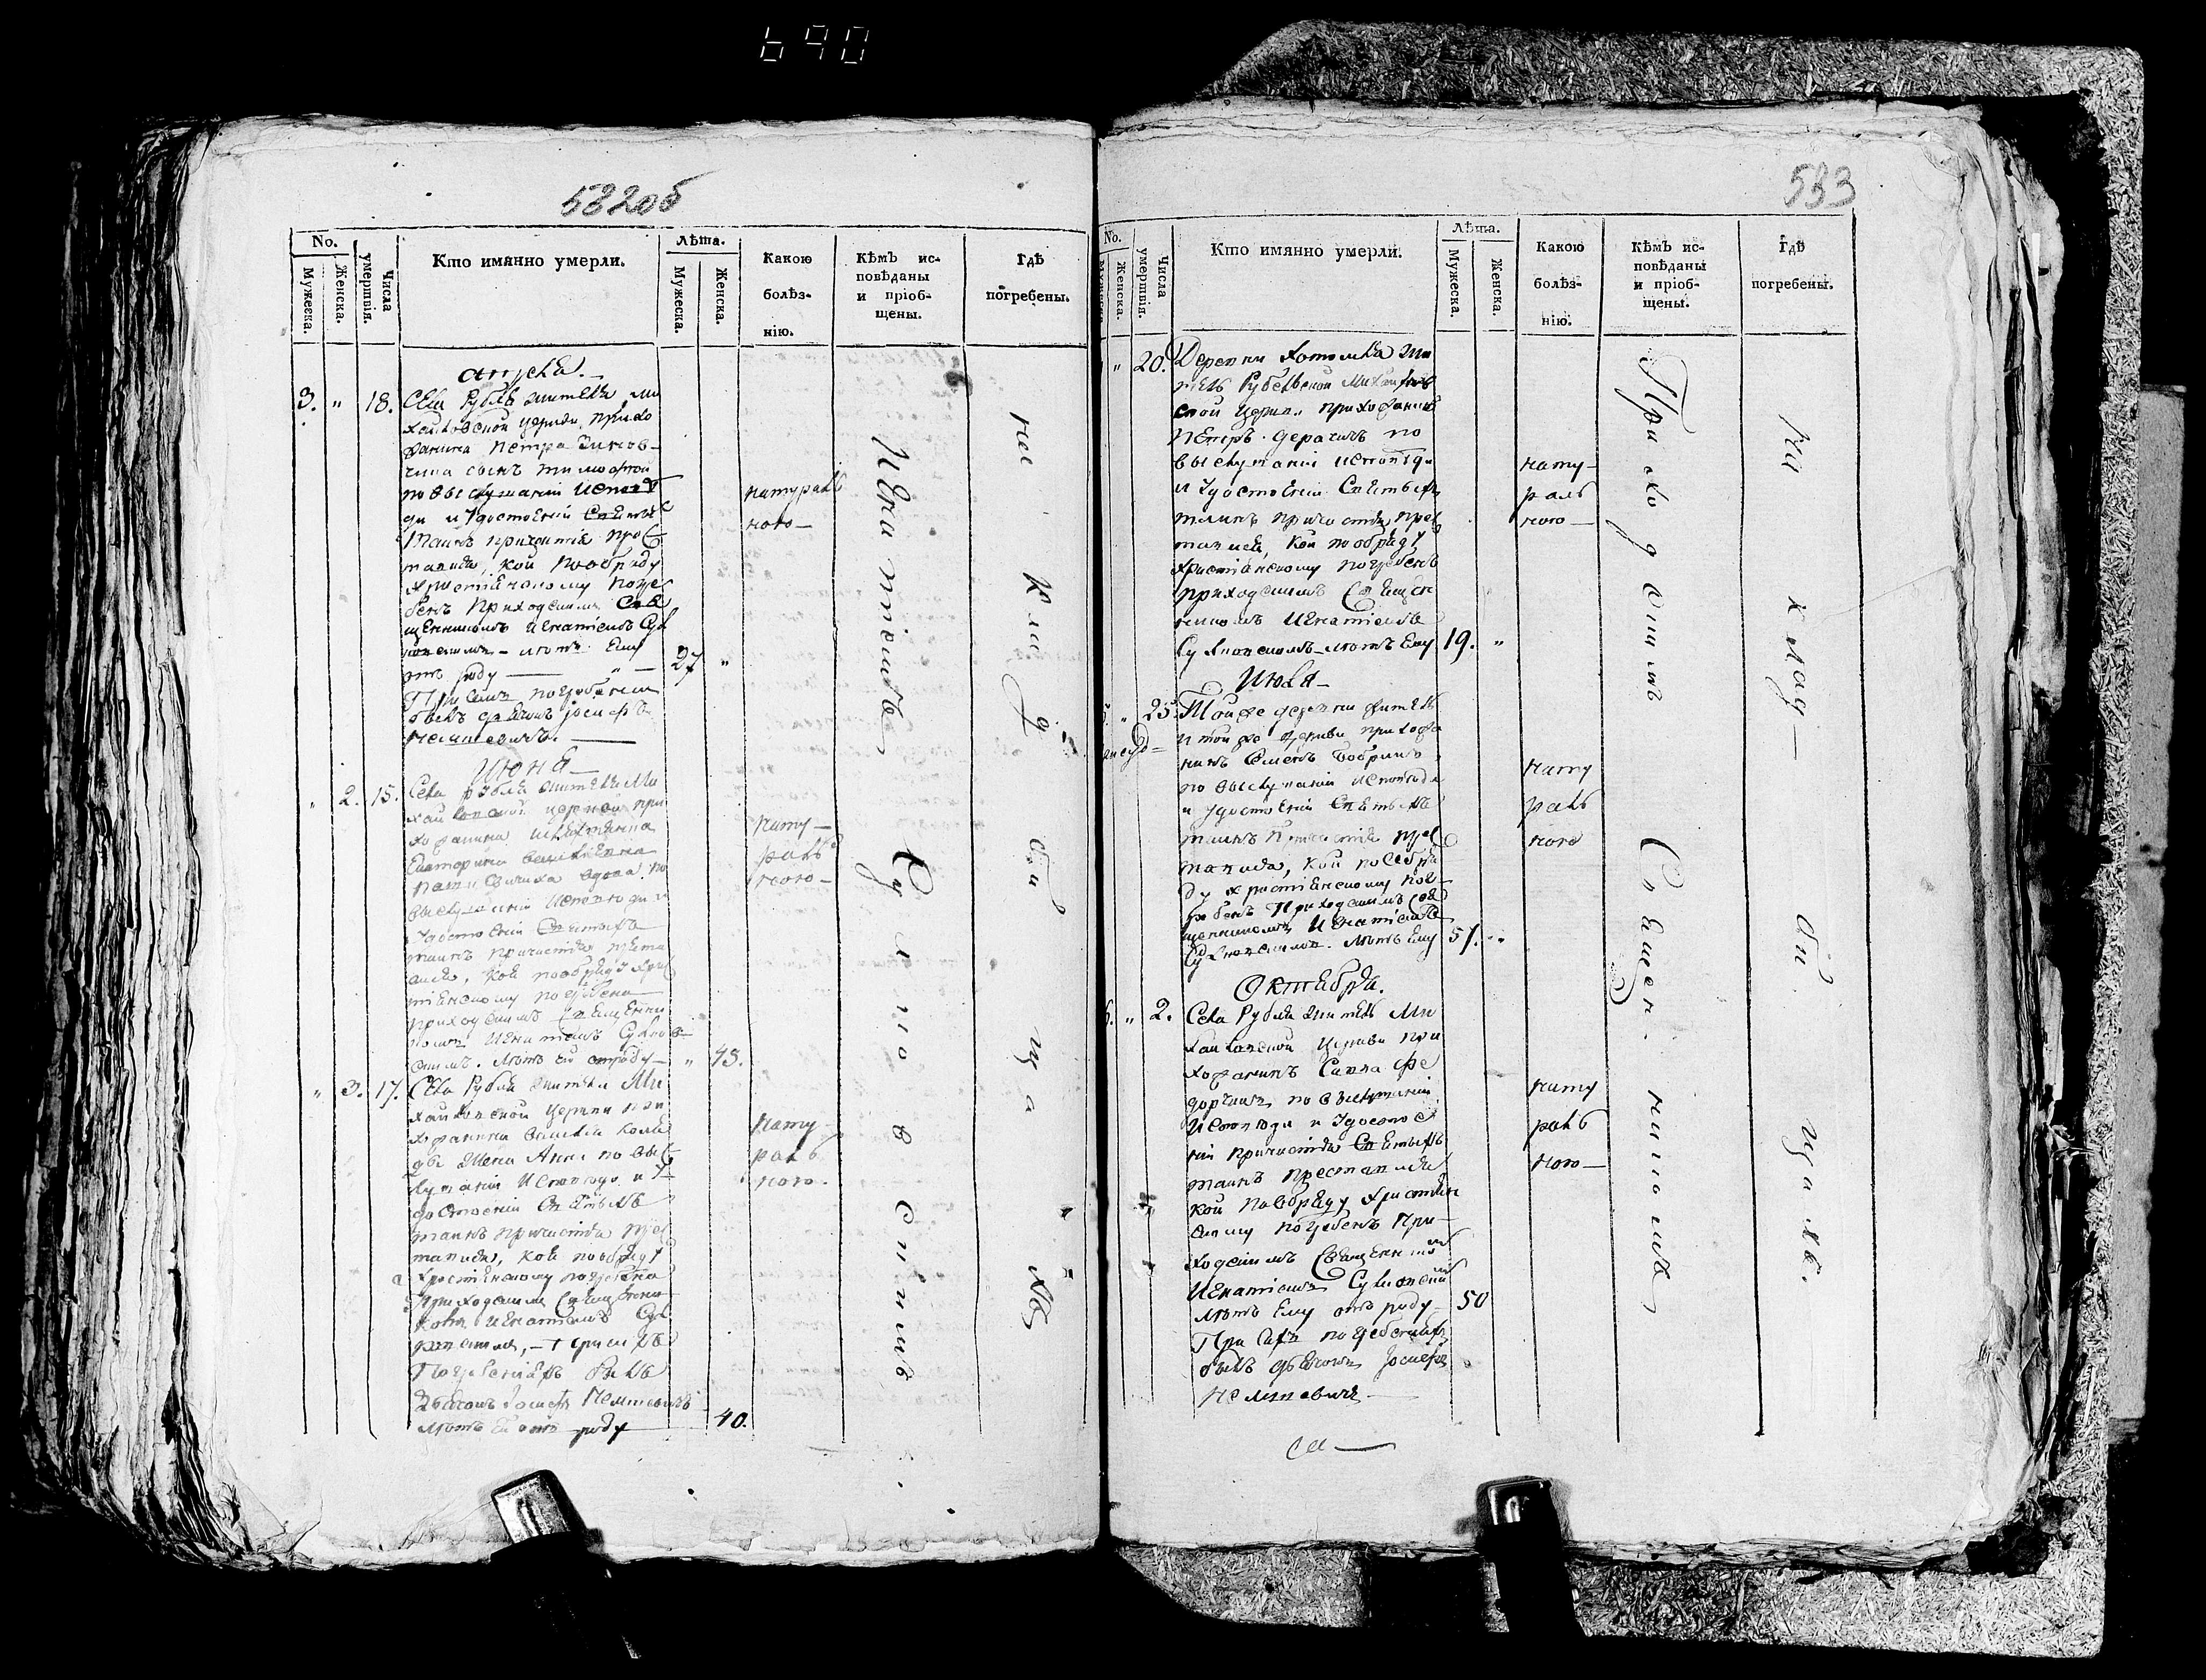 690
582об
No.
Мужеска.
Женска.
Числа умершвія.
Кто имянно умерли.
Лѣта.
Мужеска.
Женска.
Какою
болѣз-
нію.
Кѣмъ ис-
повѣданы
и пріоб-
щены.
Гдѣ
погребены.
3. " 18.
Села Рубля жителя Ми
хайловской церкви прихо
жанина Петра
сынъ Тимофтей
по выслушаніи Исповѣ
ди и удостоеніи Святыхъ
таинъ причастія прес
тавися, кой по обряду
Христіанскому погре
бенъ Приходскимъ Свя
щенникомъ Игнатіемъ Сул
ковскимъ – лѣтъ Ему
отъ роду — 27 "
При семъ погребеніи
былъ дьячокъ Іосифъ
натураль
ного —
Іюня —
" 2. 15.
Села Рубля жителя Ми
хайловской церкви при
хожанина
Екатерина
вдова по
выслушаніи Исповѣди и
удостоеніи Святыхъ
таинъ причастія преста
вися, кой по обряду Хрис
тіанскому погребена
приходскимъ Священни
комъ Игнатіемъ Сулков
скимъ. лѣтъ ей отроду — " 43.
нату —
раль
ного —
" 3. 17.
Села Рубля жителя Ми
хайловской Церкви при
хожанина
жена Анна по выс
лушаніи Исповѣди и у
достоеніи Святыхъ
таинъ причастія прес
тавися, кой по обряду
Христіанскому погребена
Приходскимъ Священни
комъ Игнатіемъ Сул
ковскимъ, – при
Погребеніи былъ
Дьячокъ Іосифъ
лѣтъ ей отъ роду — 40.
нату –
раль
ного.
Игнатіемъ Сулковскимъ
на Кладбищахъ
533
No.
Женска.
Числа умершвія.
Кто имянно умерли.
Лѣта.
Мужеска.
Женска.
Какою
болѣз-
нію.
Кѣмъ ис-
повѣданы
и пріоб-
щены.
Гдѣ
погребены.
" 20.
Деревни Хотомля жи
тель Рубельской Михайлов
ской Церкви прихожанинъ
Петръ Дерачичъ по
выслушаніи Исповѣди
и Удостоеніи Святыхъ
таинъ причастія прес
тавися, кой по обряду
Христіанскому погребенъ
приходскимъ Священ
никомъ Игнатіемъ
Сулковскимъ – лѣтъ Ему 19. "
нату –
раль
ного —
Іюля —
" 25.
Той же деревни житель
и той же Церкви прихожа
нинъ Семенъ Бобричъ
по выслушаніи Исповѣди
и Удостоеніи Святыхъ
таинъ Причастія прес
тавися, кой по Обря
ду Христіанскому пог
ребенъ Приходскимъ Свя
щенникомъ Игнатіемъ
Сулковскимъ. лѣтъ Ему 57. "
нату
раль
ного
Октября.
" 2.
Села Рубля житель Ми
хайловской Церкви при
хожанинъ Савва Фе
дорчикъ по выслушаніи
Исповѣди и Удостое
ніи причастія Святыхъ
таинъ преставися
кой по обряду Христіан
скому погребенъ При
ходскимъ Священникомъ
Игнатіемъ Сулковскимъ
лѣтъ Ему отъ роду – 50
При семъ погребеніи
былъ дьячокъ Іосифъ
нату
раль
ного —
Приходскимъ Священникомъ
На кладбищахъ.